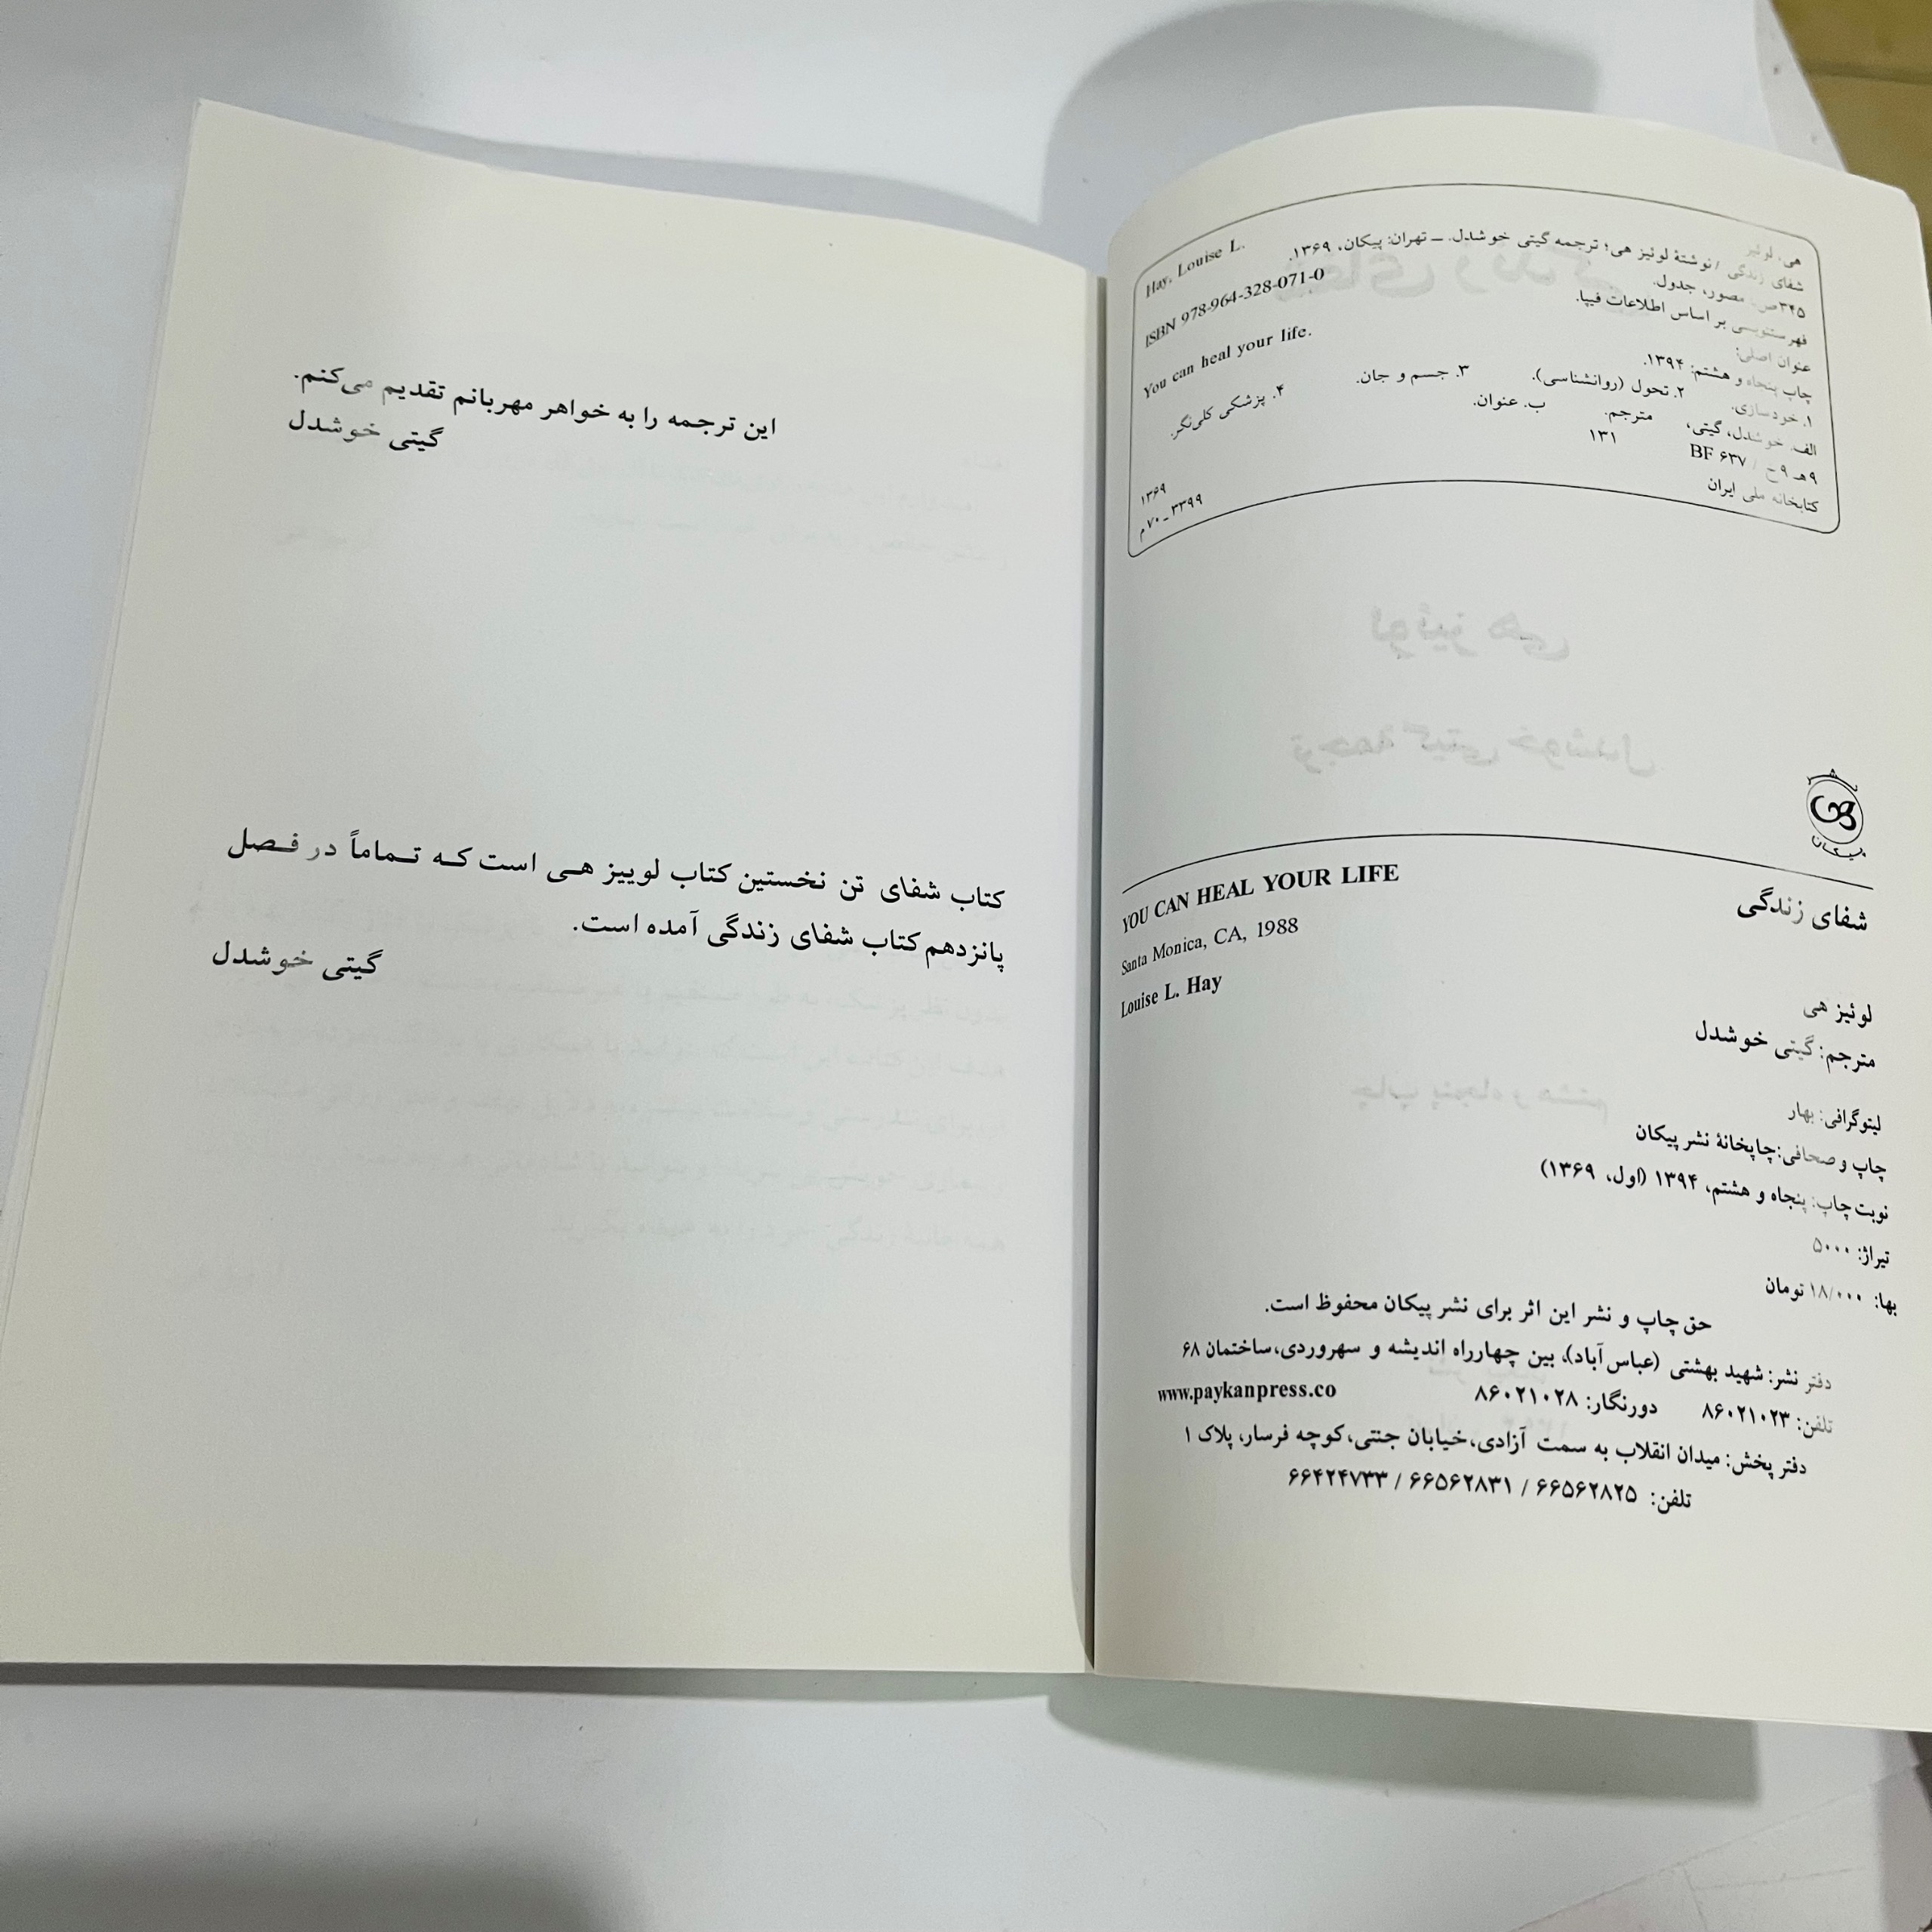 هی، لوئیز
Hay, Louise L.
شفای زندگی / نوشتهٔ لوئیز هی؛ ترجمه گیتی خوشدل. ــ تهران: پیکان، ۱۳۶۹.
۳۴۵ص.: مصور، جدول.
ISBN 978-964-328-071-0
فهرستنویسی بر اساس اطلاعات فیپا.
عنوان اصلی:
You can heal your life.
چاپ پنجاه و هشتم: ۱۳۹۴.
۱. خودسازی. ۲. تحول (روانشناسی). ۳. جسم و جان. ۴. پزشکی کلی‌نگر.
الف. خوشدل، گیتی، مترجم. ب. عنوان.
۹هـ ۹ح / BF ۶۳۷ ۱۳۱ ۱۳۶۹
کتابخانه ملی ایران ۳۳۹۹ ـ ۷۰م
پیکان
شفای زندگی
YOU CAN HEAL YOUR LIFE
Santa Monica, CA, 1988
Louise L. Hay
لوئیز هی
مترجم: گیتی خوشدل
لیتوگرافی: بهار
چاپ و صحافی: چاپخانهٔ نشر پیکان
نوبت چاپ: پنجاه و هشتم، ۱۳۹۴ (اول، ۱۳۶۹)
تیراژ: ۵۰۰۰
بها: ۱۸/۰۰۰ تومان
حق چاپ و نشر این اثر برای نشر پیکان محفوظ است.
دفتر نشر: شهید بهشتی (عباس‌آباد)، بین چهارراه اندیشه و سهروردی، ساختمان ۶۸
تلفن: ۸۶۰۲۱۰۲۳ دورنگار: ۸۶۰۲۱۰۲۸ www.paykanpress.co
دفتر پخش: میدان انقلاب به سمت آزادی، خیابان جنتی، کوچه فرسار، پلاک ۱
تلفن: ۶۶۵۶۲۸۲۵ / ۶۶۵۶۲۸۳۱ / ۶۶۴۲۴۷۳۳
این ترجمه را به خواهر مهربانم تقدیم می‌کنم.
گیتی خوشدل
کتاب شفای تن نخستین کتاب لوییز هـی است کـه تـماماً در فـصل
پانزدهم کتاب شفای زندگی آمده است.
گیتی خوشدل